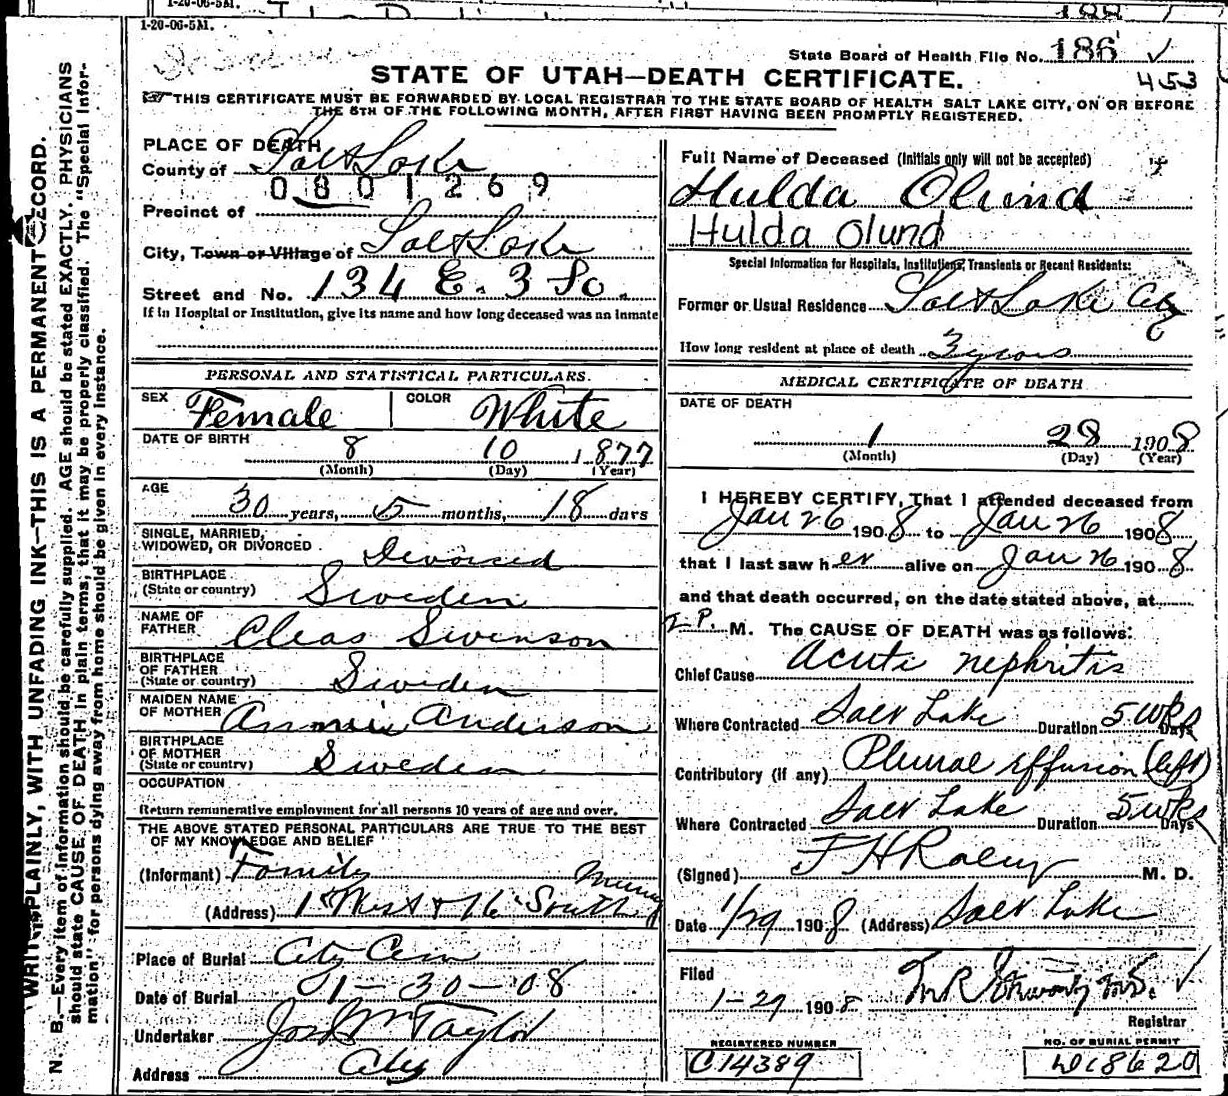 1-20-06-5M.
188
1-20-06-5M.
State Board of Health File No. 186 ✓
STATE OF UTAH—DEATH CERTIFICATE.
453
THIS CERTIFICATE MUST BE FORWARDED BY LOCAL REGISTRAR TO THE STATE BOARD OF HEALTH SALT LAKE CITY, ON OR BEFORE
THE 5TH OF THE FOLLOWING MONTH, AFTER FIRST HAVING BEEN PROMPTLY REGISTERED.
WRITE PLAINLY, WITH UNFADING INK—THIS IS A PERMANENT RECORD.
N. B.—Every item of information should be carefully supplied. AGE should be stated EXACTLY. PHYSICIANS
should state CAUSE OF DEATH in plain terms, that it may be properly classified. The "Special Infor-
mation" for persons dying away from home should be given in every instance.
PLACE OF DEATH
County of Salt Lake
0801269
Precinct of
City, Town or Village of Salt Lake
Street and No. 134 E. 3 So.
If in Hospital or Institution, give its name and how long deceased was an inmate
PERSONAL AND STATISTICAL PARTICULARS.
SEX Female COLOR White
DATE OF BIRTH 8 10 1877
(Month) (Day) (Year)
AGE 30 years, 5 months, 18 days
SINGLE, MARRIED,
WIDOWED, OR DIVORCED Divorced
BIRTHPLACE
(State or country) Sweden
NAME OF
FATHER Cleas Swenson
BIRTHPLACE
OF FATHER
(State or country) Sweden
MAIDEN NAME
OF MOTHER Annie Anderson
BIRTHPLACE
OF MOTHER
(State or country) Sweden
OCCUPATION
Return remunerative employment for all persons 10 years of age and over.
THE ABOVE STATED PERSONAL PARTICULARS ARE TRUE TO THE BEST
OF MY KNOWLEDGE AND BELIEF
(Informant) Family
(Address) 1 West & 16 South Murray
Place of Burial City Cem
Date of Burial 1-30-08
Undertaker Jos Wm Taylor
Address City
Full Name of Deceased (Initials only will not be accepted)
Hulda Olund
Hulda Olund
Special Information for Hospitals, Institutions, Transients or Recent Residents:
Former or Usual Residence Salt Lake City
How long resident at place of death 3 years
MEDICAL CERTIFICATE OF DEATH
DATE OF DEATH
1 28 1908
(Month) (Day) (Year)
I HEREBY CERTIFY, That I attended deceased from
Jan 26 1908 to Jan 26 1908
that I last saw her alive on Jan 26 1908
and that death occurred, on the date stated above, at
2 P. M. The CAUSE OF DEATH was as follows:
Chief Cause Acute nephritis
Where Contracted Salt Lake Duration 5 wks Days
Contributory (if any) Plural effusion (left)
Where Contracted Salt Lake Duration 5 wks Days
(Signed) M. D.
Date 1/29 1908 (Address) Salt Lake
Filed
1-29 1908
Registrar
REGISTERED NUMBER
C14389
NO. OF BURIAL PERMIT
D18620